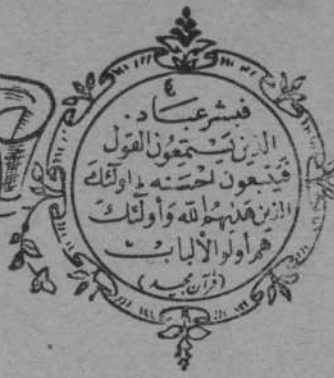 ٤
فبشر عباد.
الذين يستمعون القول
فيتبعون احسنه ط اولئك
الذين هديهم الله وأولئك
هم أولو الألباب
(قرآن مجيد)